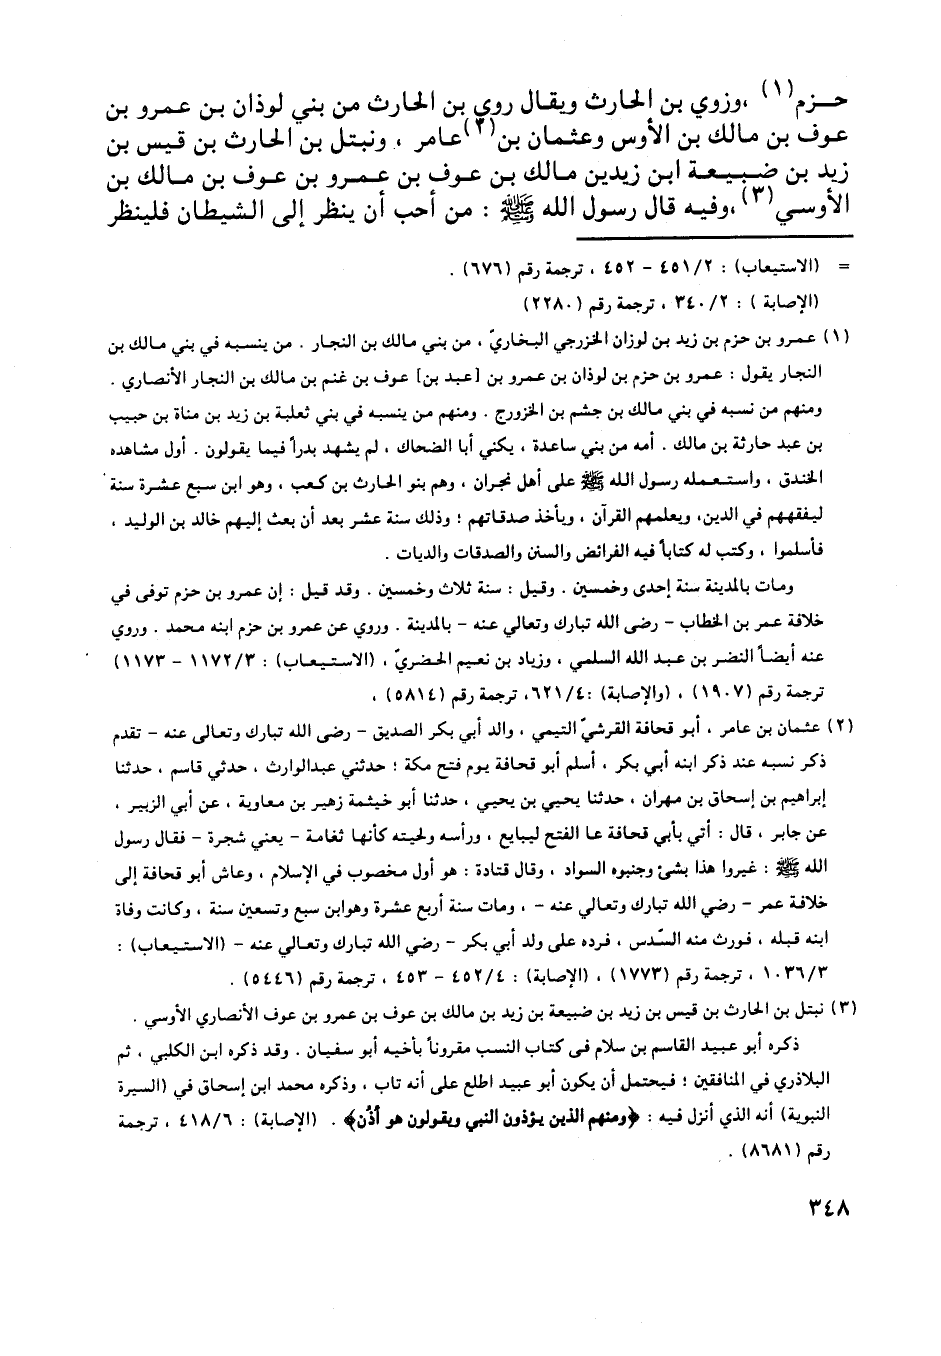 حـزم(١) ،وزوي بن الحارث ويقال روي بن الحارث من بني لوذان بن عمرو بن
عوف بن مالك بن الأوس وعثمان بن(٢)عامر ، ونبتل بن الحارث بن قيس بن
زيد بن ضبيعة ابن زيدبن مالك بن عوف بن عمرو بن عوف بن مالك بن
الأوسي(٣)،وفيه قال رسول الله ﷺ : من أحب أن ينظر إلى الشيطان فلينظر
= (الاستيعاب) : ٤٥١/٢ – ٤٥٢ ، ترجمة رقم (٦٧٦) .
(الإصابة ) : ٣٤٠/٢ ، ترجمة رقم (٢٢٨٠)
(١) عمرو بن حزم بن زيد بن لوزان الخزرجي البخاريّ ، من بني مالك بن النجار . من ينسبه في بني مالك بن
النجار يقول : عمرو بن حزم بن لوذان بن عمرو بن [عبد بن] عوف بن غنم بن مالك بن النجار الأنصاري .
ومنهم من نسبه في بني مالك بن جشم بن الخزورج . ومنهم من ينسبه في بني ثعلبة بن زيد بن مناة بن حبيب
بن عبد حارثة بن مالك . أمه من بني ساعدة ، يكني أبا الضحاك ، لم يشهد بدراً فيما يقولون . أول مشاهده
الخندق ، واستعمله رسول الله ﷺ على أهل نجران ، وهم بنو الحارث بن كعب ، وهو ابن سبع عشرة سنة
ليفقههم في الدين، ويعلمهم القرآن ، ويأخذ صدقاتهم ؛ وذلك سنة عشر بعد أن بعث إليهم خالد بن الوليد ،
فأسلموا ، وكتب له كتاباً فيه الفرائض والسنن والصدقات والديات .
ومات بالمدينة سنة إحدى وخمسين . وقيل : سنة ثلاث وخمسين . وقد قيل : إن عمرو بن حزم توفى في
خلافة عمر بن الخطاب – رضى الله تبارك وتعالي عنه – بالمدينة . وروي عن عمرو بن حزم ابنه محمد . وروي
عنه أيضاً النضر بن عبد الله السلمي ، وزياد بن نعيم الحضريّ ، (الاستيعاب) : ١١٧٢/٣ – ١١٧٣)
ترجمة رقم (١٩٠٧) ، (والإصابة) :٦٢١/٤، ترجمة رقم (٥٨١٤) ،
(٢) عثمان بن عامر ، أبو قحافة القرشيّ التيمي ، والد أبي بكر الصديق – رضى الله تبارك وتعالى عنه – تقدم
ذكر نسبه عند ذكر ابنه أبي بكر ، أسلم أبو قحافة يوم فتح مكة ؛ حدثني عبدالوارث ، حدثي قاسم ، حدثنا
إبراهيم بن إسحاق بن مهران ، حدثنا يحيي بن يحيي ، حدثنا أبو خيثمة زهير بن معاوية ، عن أبي الزبير ،
عن جابر ، قال : أتي بأبي قحافة عا الفتح ليبايع ، ورأسه ولحيته كأنها ثغامة – يعني شجرة – فقال رسول
الله ﷺ : غيروا هذا بشئ وجنبوه السواد ، وقال قتادة : هو أول مخصوب في الإسلام ، وعاش أبو قحافة إلى
خلافة عمر – رضي الله تبارك وتعالي عنه – ، ومات سنة أربع عشرة وهوابن سبع وتسعين سنة ، وكانت وفاة
ابنه قبله ، فورث منه السّدس ، فرده على ولد أبي بكر – رضي الله تبارك وتعالي عنه – (الاستيعاب) :
١٠٣٦/٣ ، ترجمة رقم (١٧٧٣) ، (الإصابة) : ٤٥٢/٤ – ٤٥٣ ، ترجمة رقم (٥٤٤٦) .
(٣) نبتل بن الحارث بن قيس بن زيد بن ضبيعة بن زيد بن مالك بن عوف بن عمرو بن عوف الأنصاري الأوسي .
ذكره أبو عبيد القاسم بن سلام فى كتاب النسب مقروناً بأخيه أبو سفيان . وقد ذكره ابن الكلبي ، ثم
البلاذري في المنافقين ؛ فيحتمل أن يكون أبو عبيد اطلع على أنه تاب ، وذكره محمد ابن إسحاق في (السيرة
النبوية) أنه الذي أنزل فيه : ﴿ومنهم الذين يؤذون النبي ويقولون هو أذُن﴾ . (الإصابة) : ٤١٨/٦ ، ترجمة
رقم (٨٦٨١) .
٣٤٨